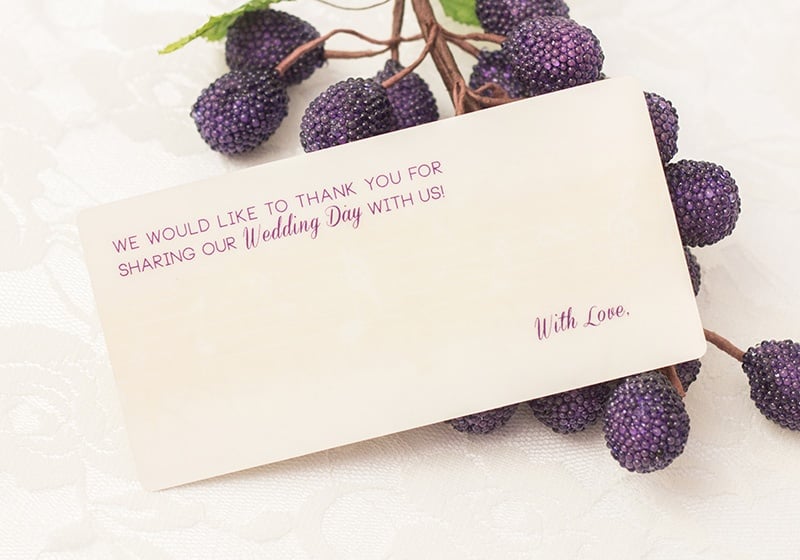 WE WOULD LIKE TO THANK YOU FOR
SHARING OUR Wedding Day WITH US!
With Love,